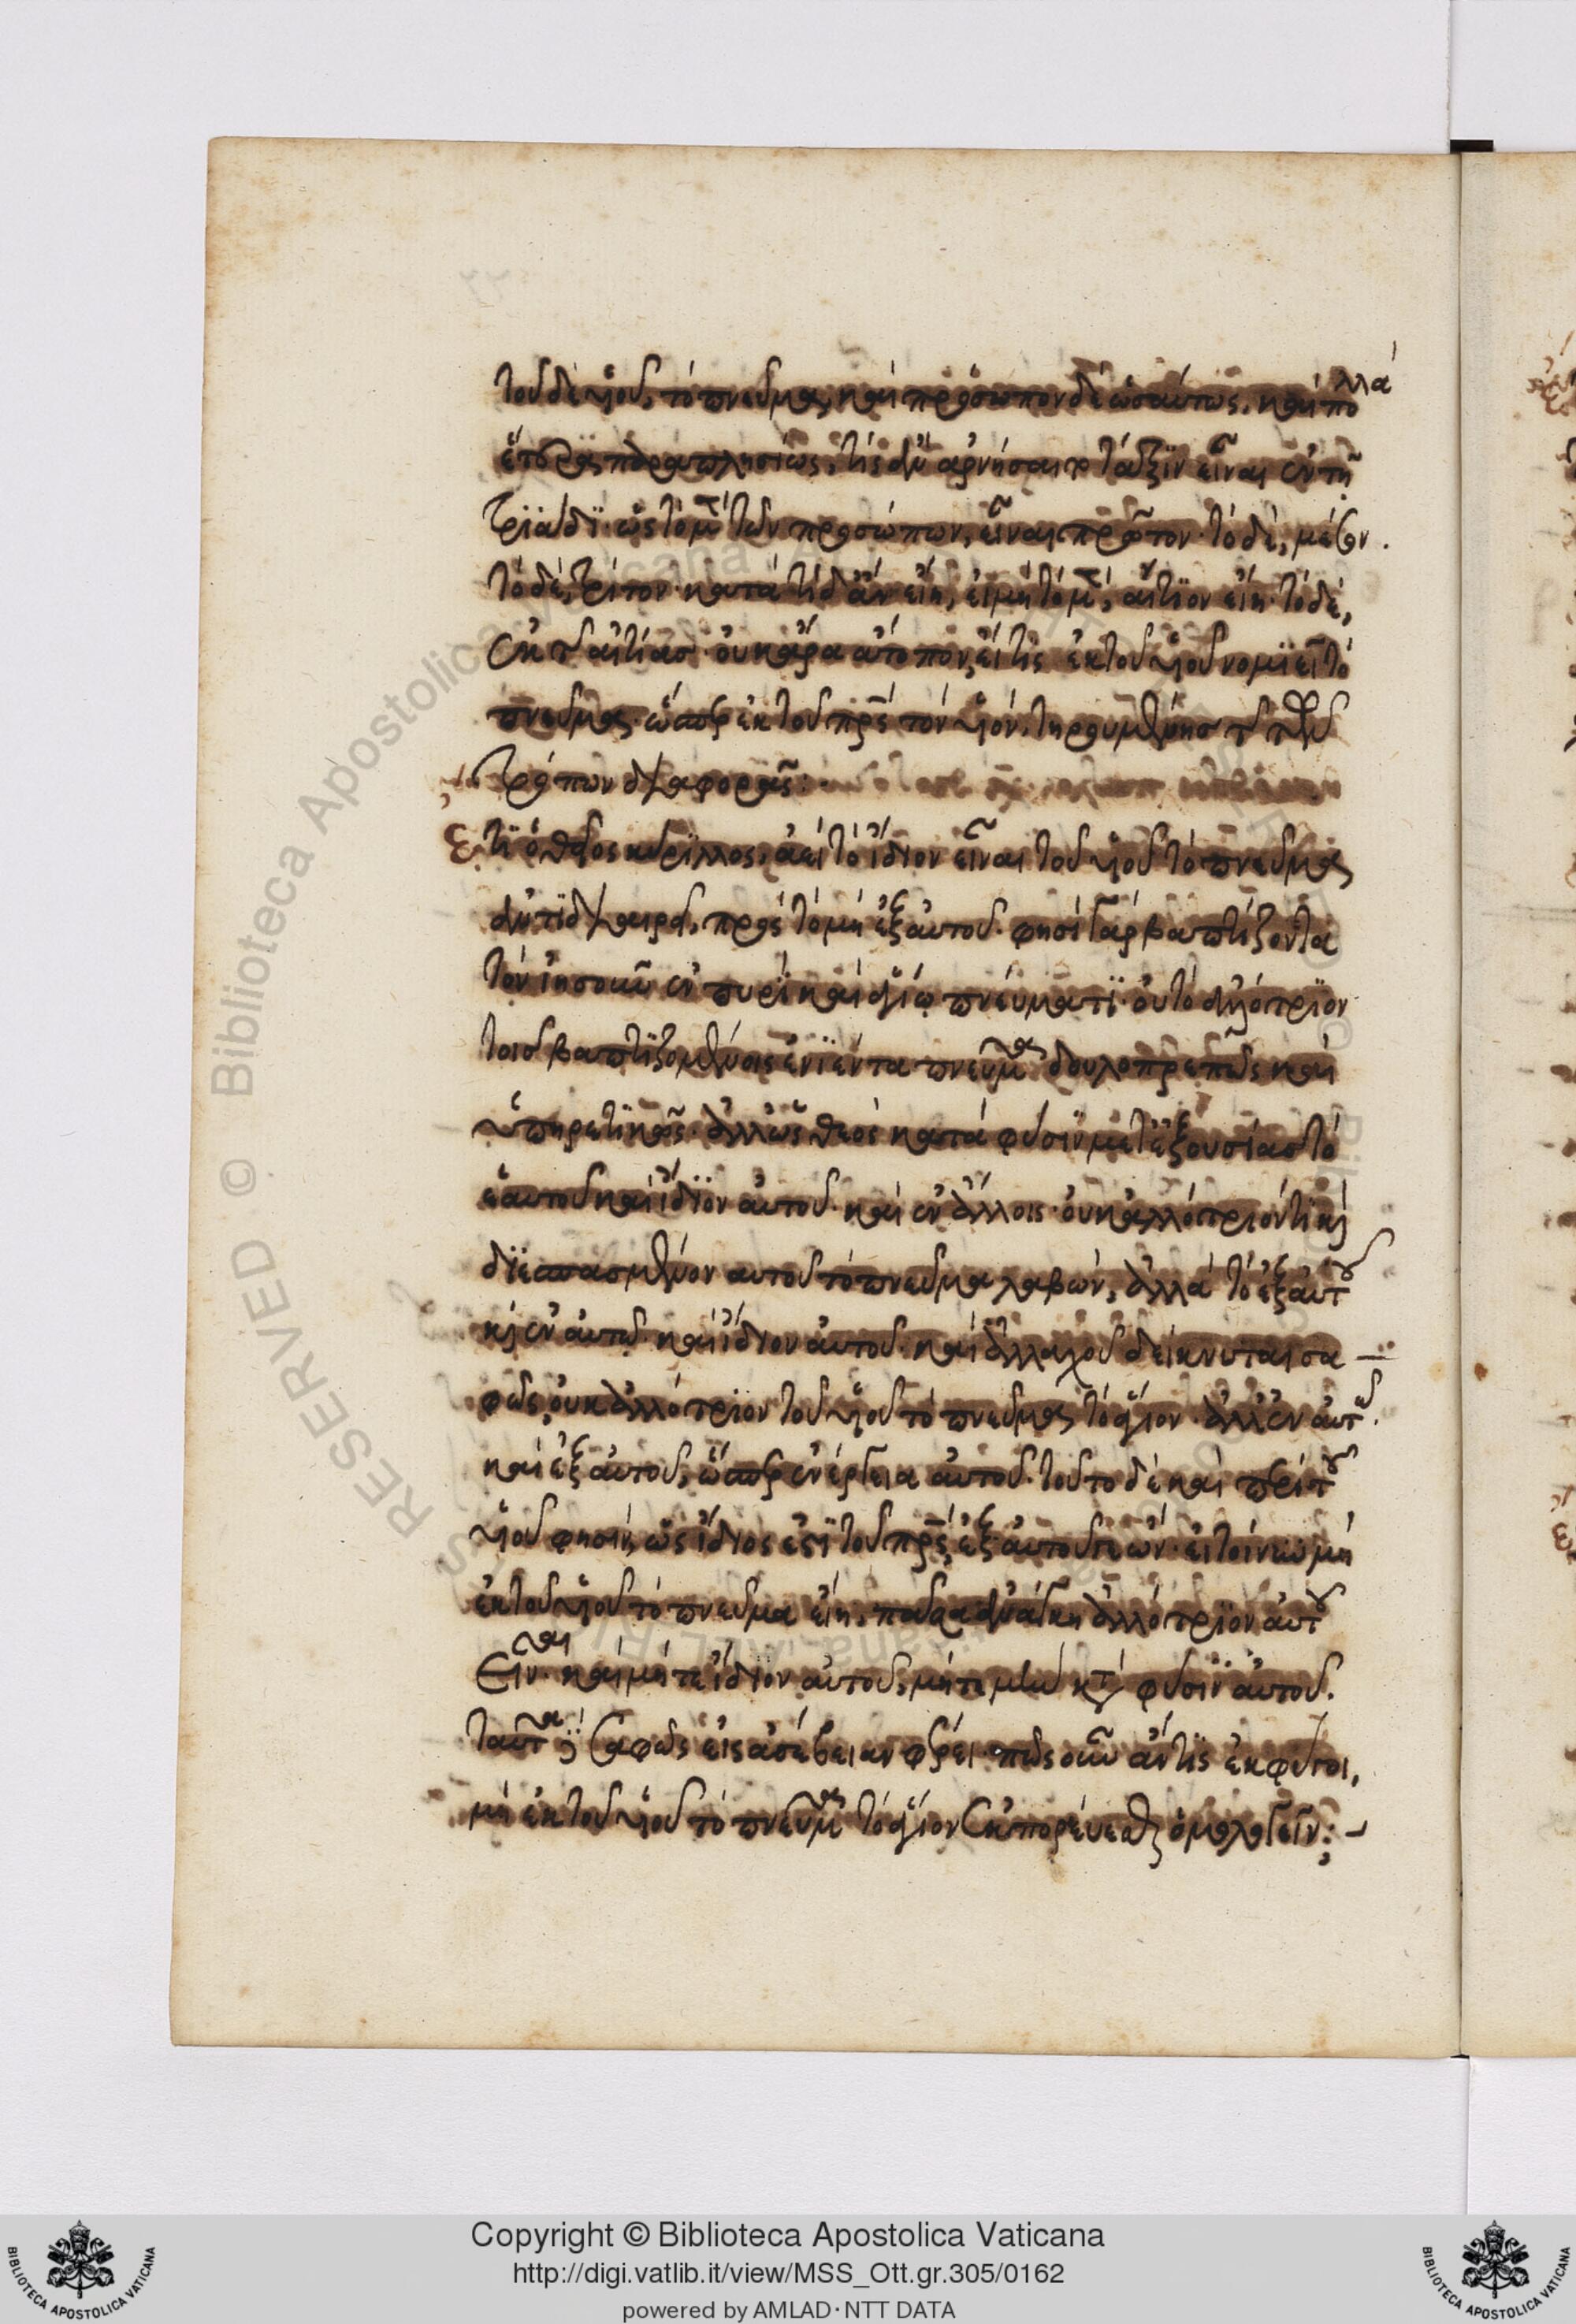 τοῦ δὲ υἱοῦ, τὸ πνεῦμα, καὶ πρόσωπον δὲ ὡσαύτως. καὶ πολλὰ
ἕτερα παραπλησίως, τίς ἂν ἀρνήσαιτο τάξϊν εἶναι ἐν τῇ
τρϊάδϊ· ὡς τὸ μὲν τῶν προσώπων, εἶναι πρῶτον· τὸ δὲ, μέσον.
τὸ δὲ, τρίτον· κατὰ τί δ' ἂν εἴη, εἰ μὴ τὸ μὲν, αἴτϊον εἴη· τὸ δὲ,
ἐκ τῆς αἰτίας· οὐκ ἄρα ἄτοπον, εἴ τις ἐκ τοῦ υἱοῦ νομϊεῖ τὸ
πνεῦμα. ὥσπερ ἐκ τοῦ πρς τὸν υἱόν. τηρουμένης τῆς τῶν
τρόπων διαφορᾶς:
Ἔτϊ ὁ θεῖος κύρϊλλος, ἀεὶ τὸ ἴδιον εἶναι τοῦ υἱοῦ τὸ πνεῦμα
ἀντϊδιαιρεῖ, πρὸς τὸ μὴ ἐξ αὐτοῦ. φησὶ γὰρ βαπτίζοντα
τὸν ἰησοῦν ἐν πυρὶ καὶ ἁγίῳ πνεύματϊ· οὐ τὸ ἀλλότρϊον
τοῖς βαπτϊζομένοις ἐνϊέντα πνεῦμα δουλοπρεπῶς καὶ
ὑπηρετϊκῶς. ἀλλ' ὡς θεὸς κατὰ φύσϊν μετ' ἐξουσίας τὸ
ἑαυτοῦ καὶ ἴδϊον αὐτοῦ. καὶ ἐν ἄλλοις· οὐκ ἀλλότριόν τϊ καὶ
δϊεσπασμένον αὐτοῦ τὸ πνεῦμα λαβὼν, ἀλλὰ τὸ ἐξ αὐτοῦ
καὶ ἐν αὐτῷ. καὶ ἴδιον αὐτοῦ. καὶ ἀλλαχοῦ δείκνυται σα
φῶς, οὐκ ἀλλότρϊον τοῦ υἱοῦ τὸ πνεῦμα τὸ ἅγιον. ἀλλ' ἐν αὐτῷ.
καὶ ἐξ αὐτοῦ, ὥσπερ ἐνέργεια αὐτοῦ. τοῦτο δὲ καὶ περὶ τοῦ
υἱοῦ φησὶν, ὡς ἴδιος ἐστϊ τοῦ πρς, ἐξ αὐτοῦ τε ὤν. εἰ τοίνυν μὴ
ἐκ τοῦ υἱοῦ τὸ πνεῦμα εἴη, πᾶσα ἀνάγκη ἀλλότρϊον αὐτοῦ
εἶναι. καὶ μήτε ἴδϊον αὐτοῦ, μήτε μὴν κατὰ φύσϊν αὐτοῦ.
ταῦτα δὲ σαφῶς εἰς ἀσέβειαν φέρει· πῶς οὖν ἄν τϊς ἐκφύγοι,
μὴ ἐκ τοῦ υἱοῦ τὸ πνεῦμα τὸ ἅγιον ἐκπορεύεσθαι ὁμολογεῖν;
Copyright © Biblioteca Apostolica Vaticana
http://digi.vatlib.it/view/MSS_Ott.gr.305/0162
powered by AMLAD·NTT DATA